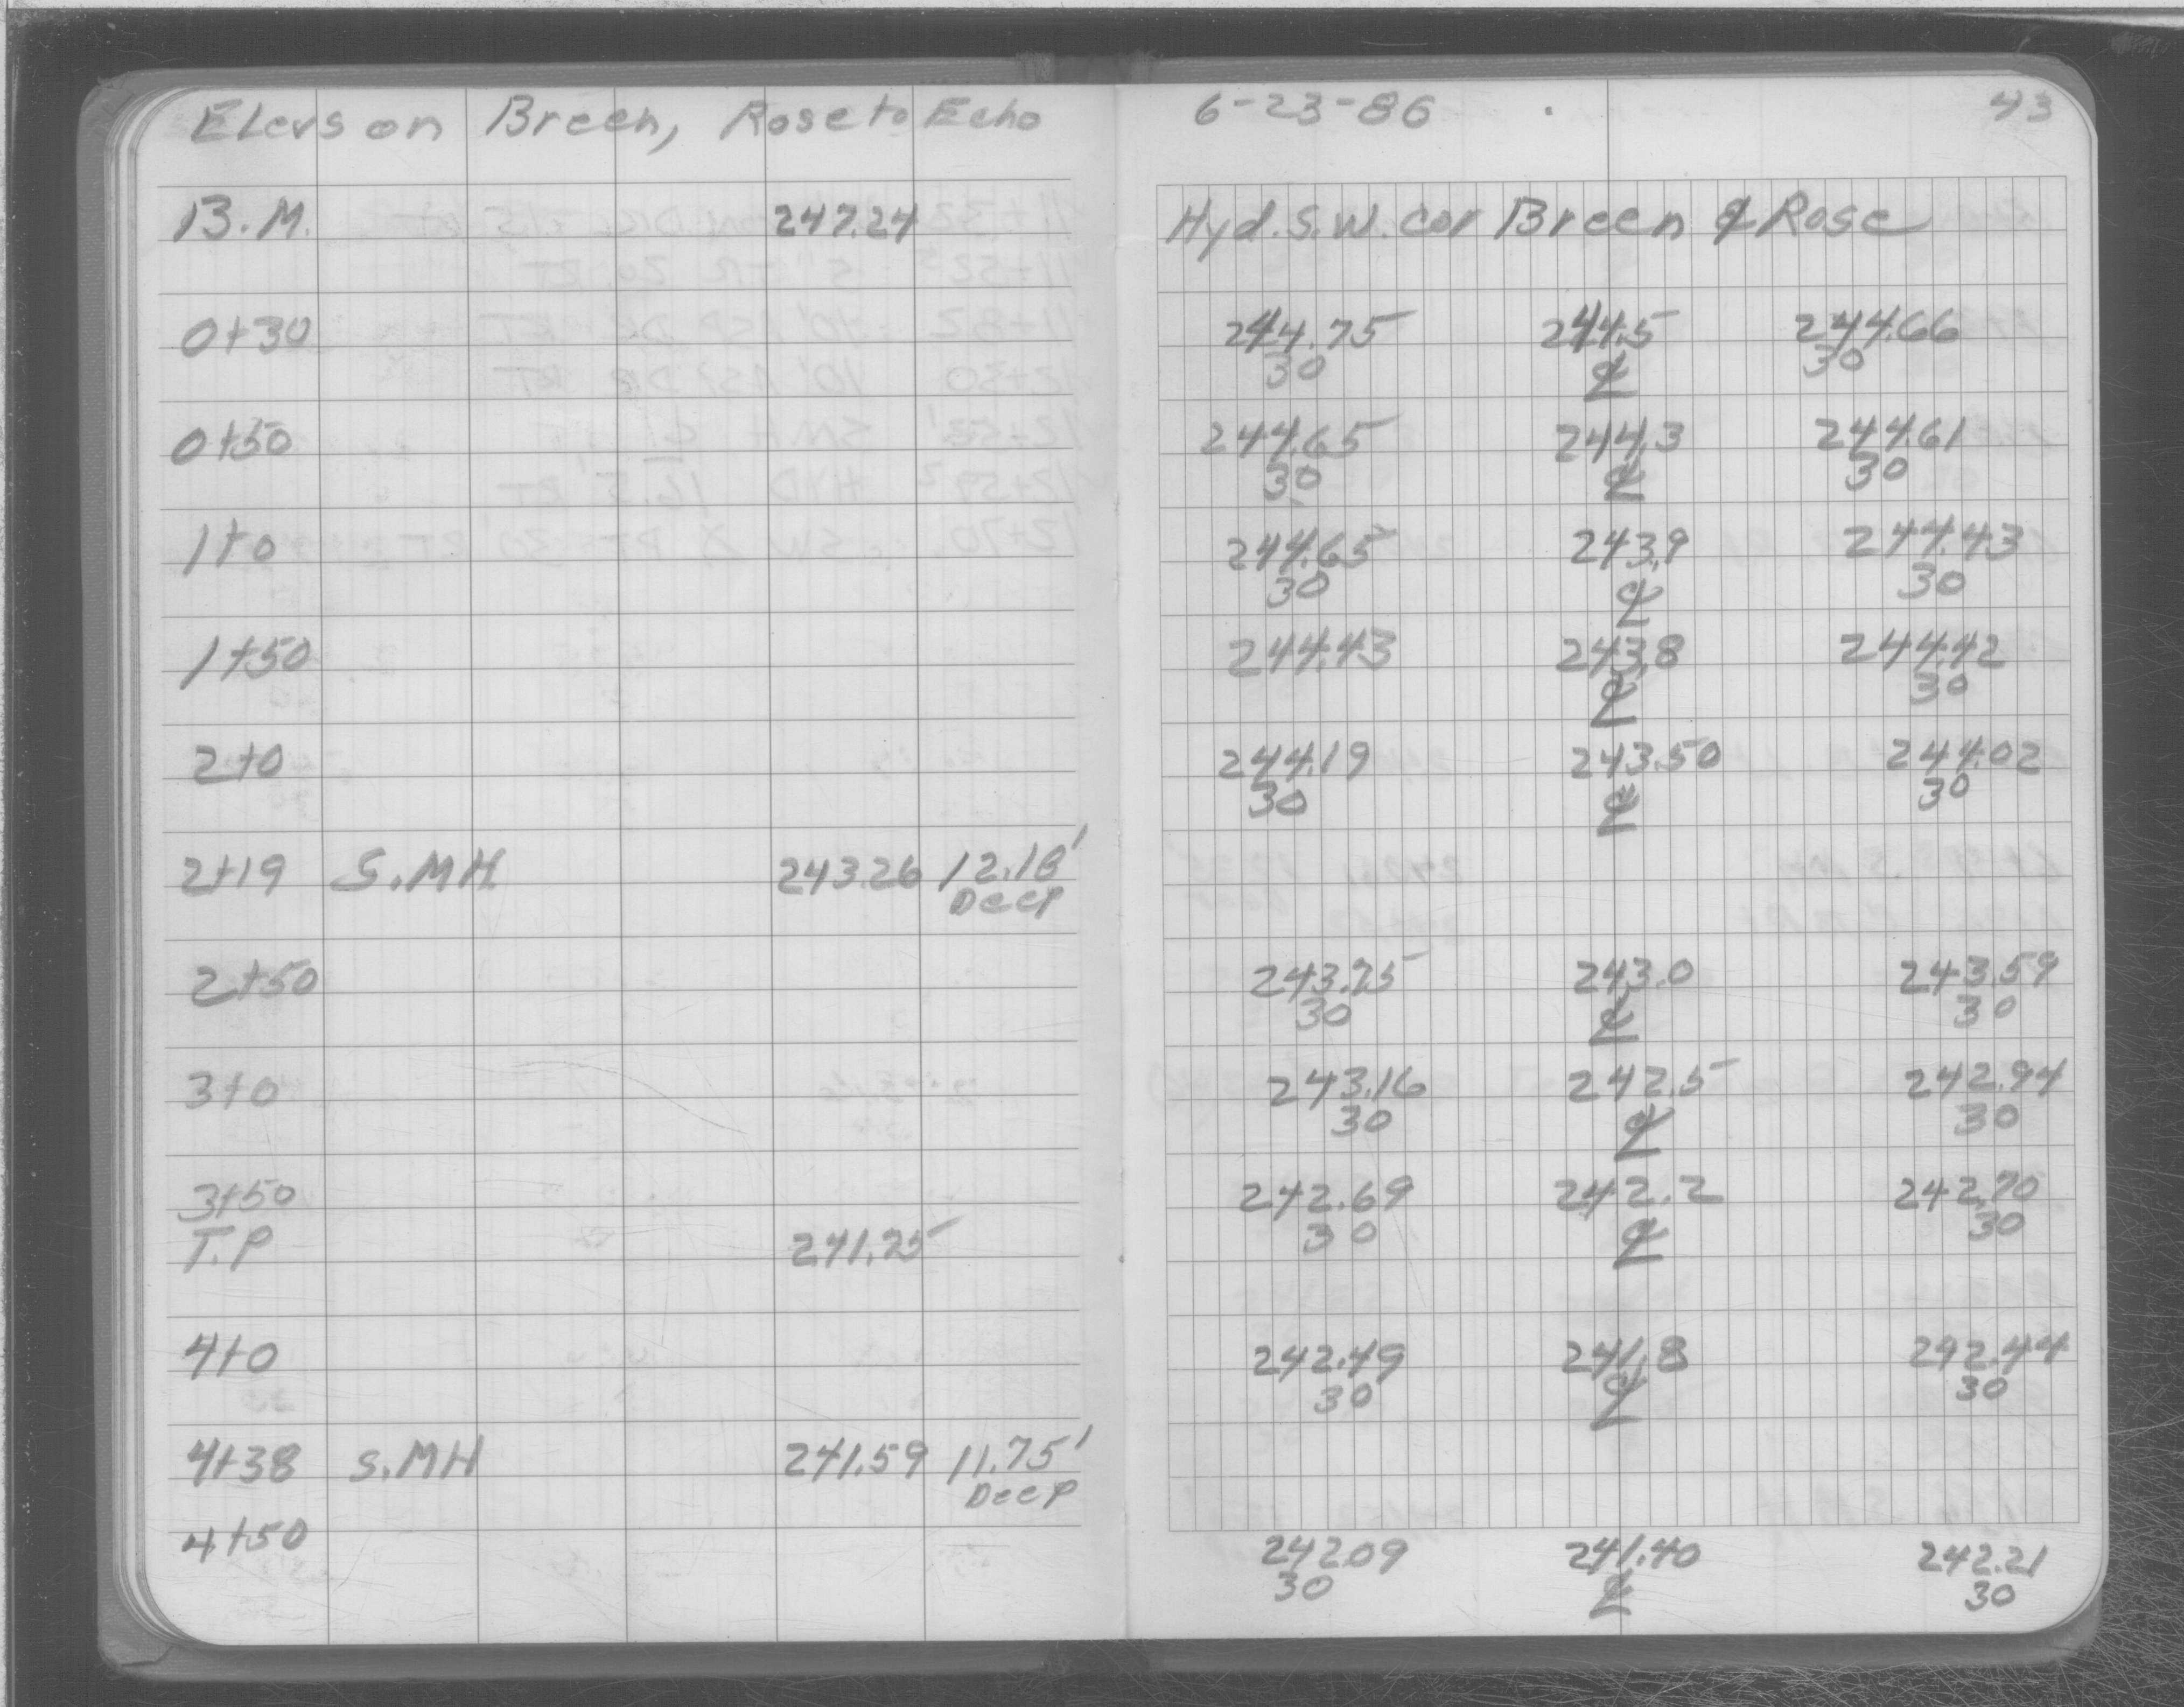 Elevs on Breen, Rose to Echo 6-23-86 43
B.M. 247.24 Hyd. S.W. cor Breen & Rose
0+30 244.75 244.5 244.66
30 ℄ 30
0+50 244.65 244.3 244.61
30 ℄ 30
1+0 244.65 243.9 244.43
30 ℄ 30
1+50 244.43 243.8 244.42
℄ 30
2+0 244.19 243.50 244.02
30 ℄ 30
2+19 S.MH 243.26 12.18'
Deep
2+50 243.75 243.0 243.59
30 ℄ 30
3+0 243.16 242.5 242.94
30 ℄ 30
3+50 242.69 242.2 242.70
30 ℄ 30
T.P 241.25
4+0 242.49 241.8 242.44
30 ℄ 30
4+38 S.MH 241.59 11.75'
Deep
4+50 242.09 241.40 242.21
30 ℄ 30